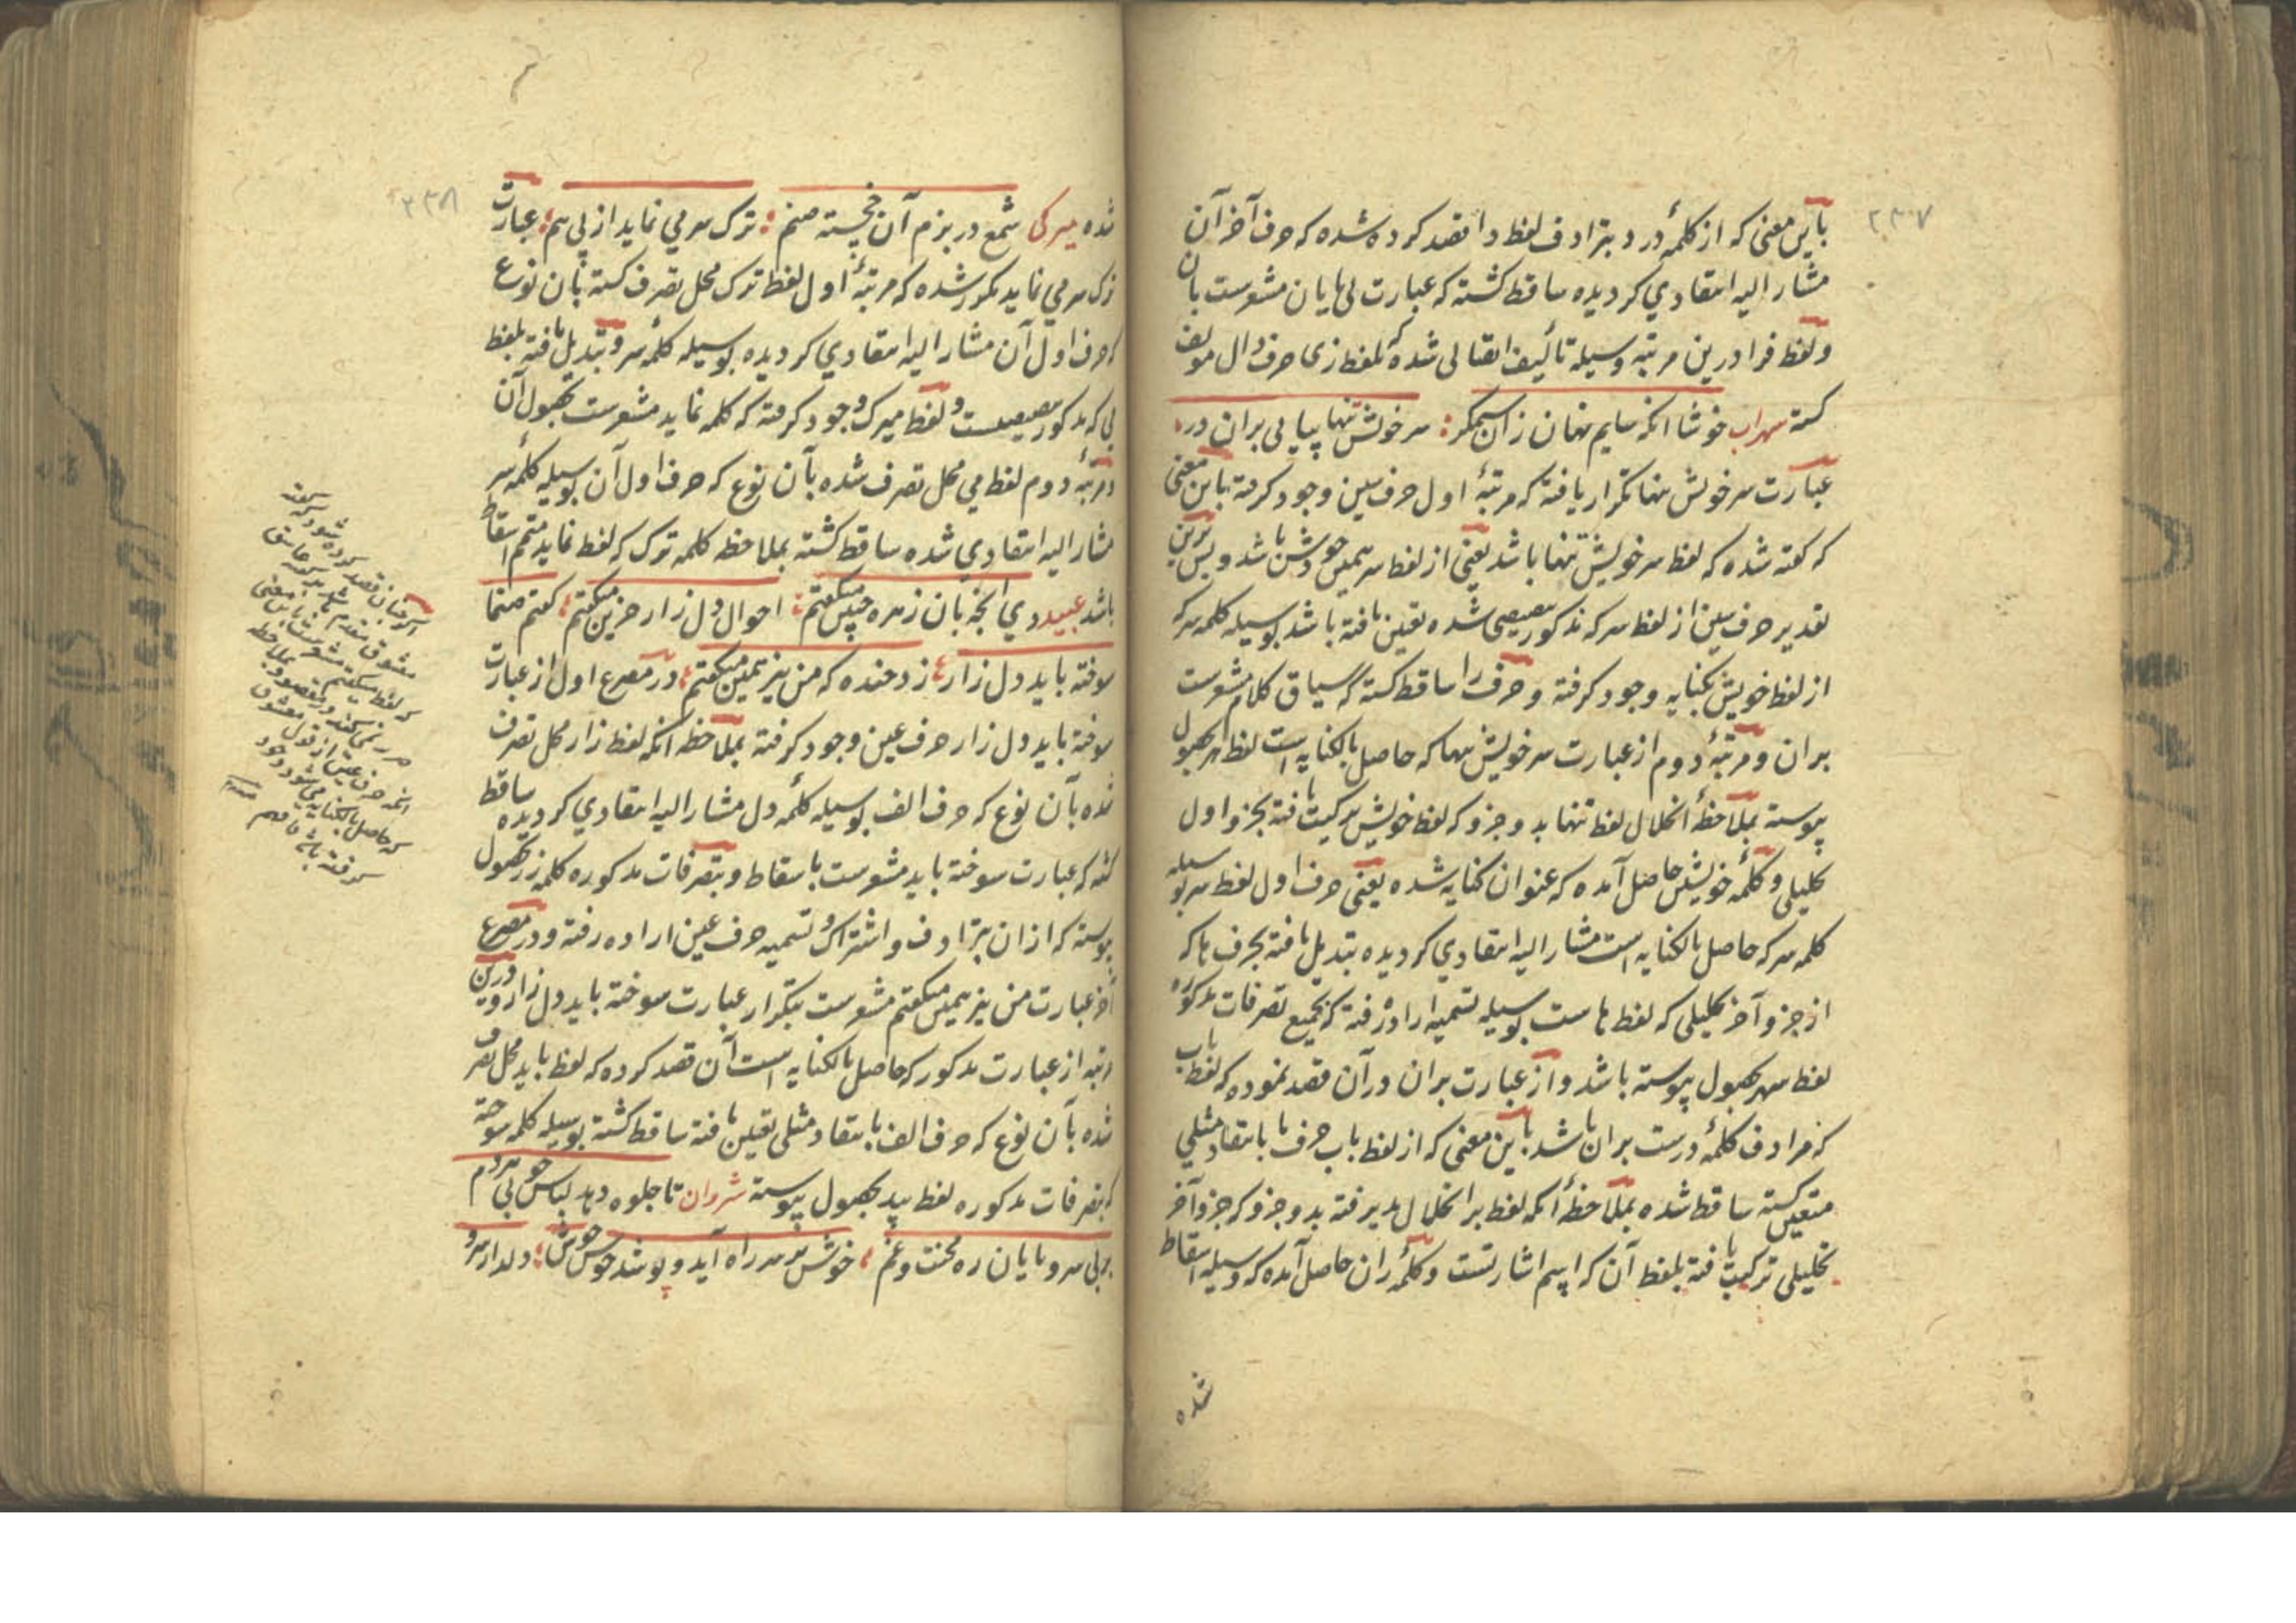 ۲۳۷
باین معنی که از کلمهٔ درد بترادف لفظ دا قصد کرده شده که حرف آخر آن
مشار الیه انتقادی کردیده ساقط کشته که عبارت بی پایان مشعرست بان
ولفظ فرا درین مرتبه وسیله تألیف اتصالی شده که بلفظ زی حرف دال مولف
کشته سهراب خوشا انکه سایم نهان زان سیمگر: سر خویش تنها بیابی بران در
عبارت سر خویش تنها تکرار یافته که مرتبهٔ اول حرف سین وجود کرفته باین معنی
که کفته شده که لفظ سر خویش تنها باشد یعنی از لفظ سر همین خودش باشد و بس برین
تقدیر حرف سین از لفظ سر که مذکور شده تعین یافته باشد بوسیله کلمه سر که
از لفظ خویش بکنایه وجود کرفته و حرف را ساقط کشته که سیاق کلام مشعرست
بران و مرتبهٔ دوم از عبارت سر خویش تنها که حاصل بالکنایه است لفظ مهر بحصول
پیوسته بملاحظهٔ انحلال لفظ تنها بدو جزو که لفظ خویش ترکیب یافته بجزو اول
تحلیلی و کلمه خویشتن حاصل آمده که عنوان کنایه شده یعنی حرف اول لفظ سر بوسیله
کلمه سر که حاصل بالکنایه است مشار الیه انتقادی کردیده تبدیل یافته بحرف ها که
از جزو آخر تحلیلی که لفظ هاست بوسیله تسمیه اراده رفته که بجمیع تصرفات مذکوره
لفظ سهر بحصول پیوسته باشد و از عبارت بران در آن قصد نموده که لفظ باب
که مرادف کلمهٔ درست بران باشد باین معنی که از لفظ باب حرف با بانتقاد مثلی
متعین کشته ساقط شده بملاحظهٔ انکه لفظ بر انحلال پذیرفته بدو جزو که جزو آخر
تحلیلی ترکیب یافته بلفظ آن که اسم اشارتست و کلمهٔ ران حاصل آمده که وسیله اسقاط
شده
۲۳۸
شده میرکی شمع در بزم آن خجسته صنم: ترک سر می نماید از پی هم: عبارت
ترک سر می نماید مکرر شده که مرتبهٔ اول لفظ ترک محل تصرف کشته بان نوع
که حرف اول آن مشار الیه انتقادی کردیده بوسیله کلمهٔ سر و تبدیل یافته بلفظ
می که مذکور و لفظ میرک وجود کرفته که کلمه نماید مشعرست بحصول آن
و مرتبهٔ دوم لفظ می محل تصرف شده بآن نوع که حرف اول آن بوسیله کلمهٔ سر
مشار الیه انتقادی شده ساقط کشته بملاحظه کلمه ترک که لفظ نماید متمم اسقاط
باشد عبید دی با زبان زهره جبین میکفتم: احوال دل زار حزین میکفتم: کفتم صنما
سوخته باید دل زار: زد خنده که من نیز همین میکفتم: در مصرع اول از عبارت
سوخته باید دل زار حرف عین وجود کرفته بملاحظه انکه لفظ زار محل تصرف
شده بآن نوع که حرف الف بوسیله کلمهٔ دل مشار الیه انتقادی کردیده ساقط
کشته که عبارت سوخته باید مشعرست باسقاط و بتصرفات مذکوره کلمه زر بحصول
پیوسته که ازان بترادف و اشتراک و تسمیه حرف عین اراده رفته و در مصرع
آخر عبارت من نیز همین میکفتم مشعرست بتکرار عبارت سوخته باید دل زار و درین
مرتبه از عبارت مذکور که حاصل بالکنایه است آن قصد کرده که لفظ باید محل تصرف
شده بآن نوع که حرف الف بانتقاد مثلی تعین یافته ساقط کشته بوسیله کلمه سوخته
که بتصرفات مذکوره لفظ بید بحصول پیوسته شروان تا جلوه دهد لباس خوبی هردم
بر بی سر و پایان ره محنت و غم: خوش بر سر راه آید و پوشد خوش خوش: دلدار سر و
کرده شود
معشوق مقدم
که لفظ میکفتم مشعرست باین معنی
انکه حرف عین از قول معشوق
که حاصل بالکنایه می شود وجود
کرفته باشد فافهم